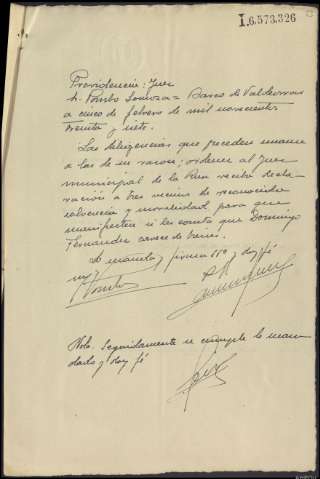 I.6.573.326
Providencia: Juez
Sr. Pombo Somoza = Barco de Valdeorras
a cinco de febrero de mil novecientos
treinta y siete.
Las diligencias que preceden unanse
a las de su razon; ordenese al Juez
municipal de la Rua reciba decla-
ración a tres vecinos de reconocida
solvencia y moralidad para que
manifiesten si les consta que Domingo
Fernandez carece de bienes.
Lo mandó y firma SSª y doy fé
Pombo
Nota. Seguidamente se cumple lo man-
dado y doy fé